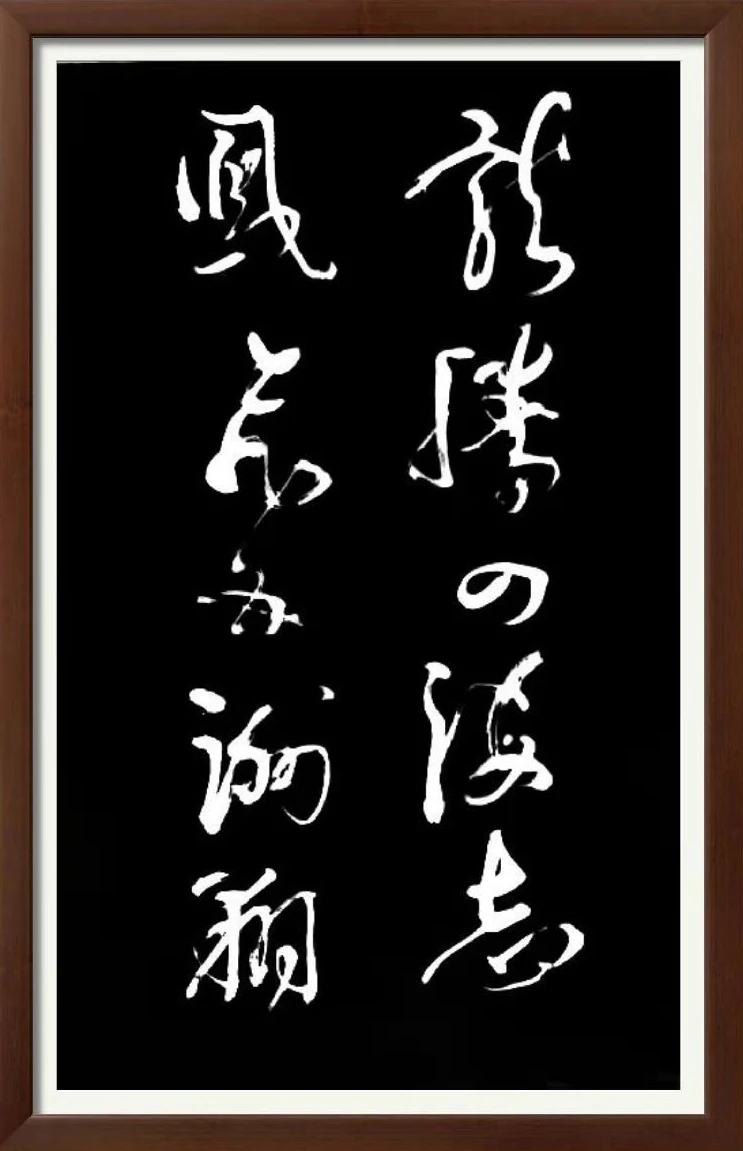 龍騰四海志
鳳五洲翔